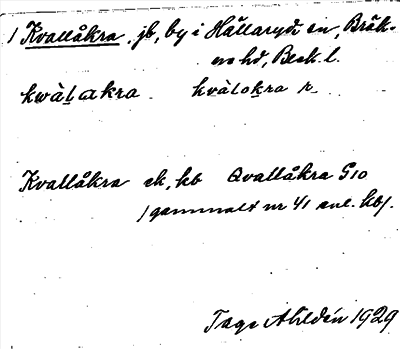 / Kvallåkra jb, by i Hällaryd sn, Bräk-
ne hd, Blek. l.
kwàlakra kvàlokra r
Kvallåkra ek, kb Qvallåkra G 10
/gammalt nr 41 enl. kb/.
Tage Ahldén 1929